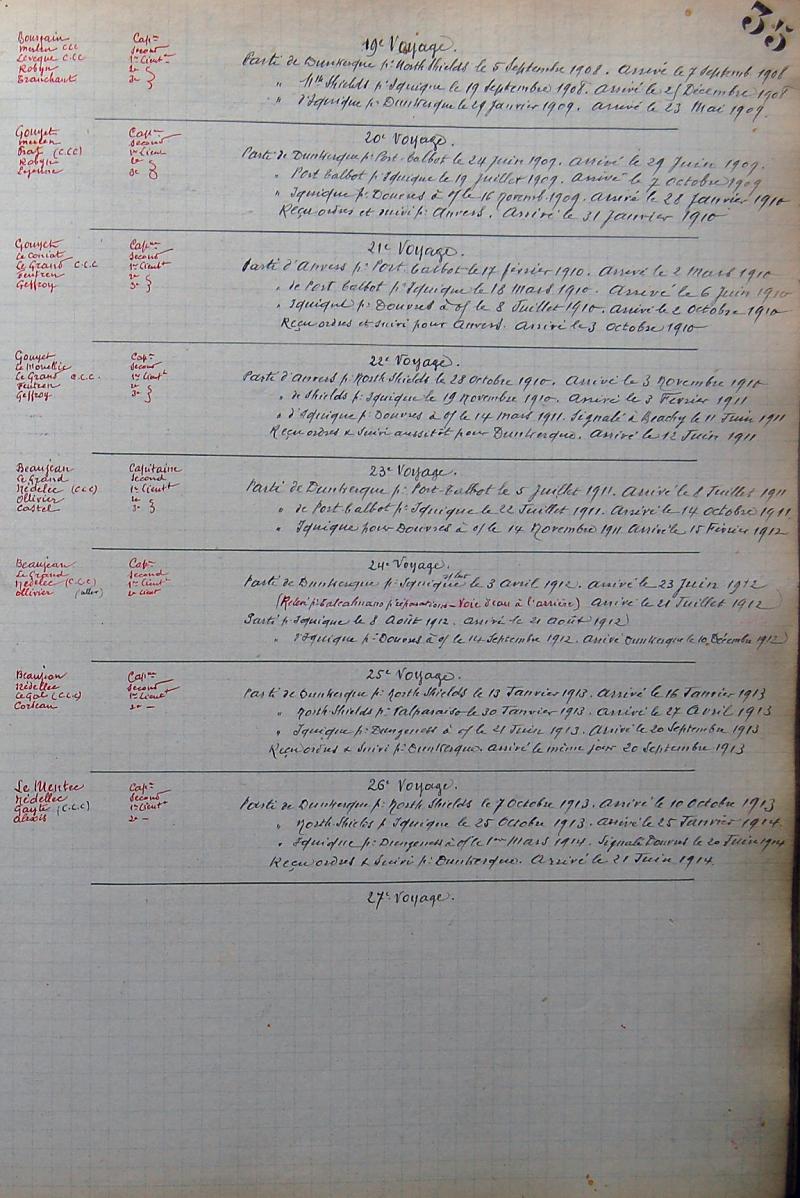 35
19e Voyage.
Cap ne
Merlen CCC Second
Leveque C.C.C 1er Lieutt
Robyn 2e
Branchart 3e
Parti de Dunkerque pr North Shields le 5 Septembre 1908. Arrivé le 7 Septemb 1908
" Nth Shields pr Iquique le 19 Septembre 1908. Arrivé le 25 Décembre 1908
" d'Iquique pr Dunkerque le 29 Janvier 1909. Arrivé le 23 Mai 1909.
20e Voyage.
Gouyet Capne
Merlen Second
(C.C.C) 1er Lieut
Robyn 2e
3e
Parti de Dunkerque pr Port-Talbot le 24 Juin 1909. Arrivé le 29 Juin 1909.
" Port Talbot pr Iquique le 19 Juillet 1909. Arrivé le 7 Octobre 1909
" Iquique pr Douvres à o/ le 16 Novemb. 1909. Arrivé le 28 Janvier 1910
Reçu ordres et suivi pr Anvers. Arrivé le 31 Janvier 1910
21e Voyage.
Gouyet Capne
Le Coniat Second
Le Grand C.C.C 1er Lieutt
Feutren 2e
Geffroy 3e
Parti d'Anvers pr Port Talbot le 17 février 1910. Arrivé le 2 Mars 1910
" de Port Talbot pr Iquique le 18 Mars 1910. Arrivé le 6 Juin 1910
" Iquique pr Douvres à o/ le 8 Juillet 1910. Arrivé le 2 Octobre 1910
Reçu ordres et suivi pour Anvers. Arrivé le 3 Octobre 1910
22e Voyage.
Gouyet Capne
Le Mouellic Second
Le Grand C.C.C. 1er Lieutt
Feutren 2e
Geffroy 3e
Parti d'Anvers pr North Shields le 28 Octobre 1910. Arrivé le 3 Novembre 1910
" de Shields pr Iquique le 19 Novembre 1910. Arrivé le 3 Février 1911
" d'Iquique pr Douvres à o/ le 14 Mars 1911. Signalé à Beachy le 11 Juin 1911
Reçu ordres & Suivi aussitôt pour Dunkerque. Arrivé le 12 Juin 1911
23e Voyage.
Beaujean Capitaine
Le Grand Second
Nédélec (C.C.C) 1er Lieutt
Ollivier 2e
Castel 3e
Parti de Dunkerque pr Port-Talbot le 5 Juillet 1911. Arrivé le 8 Juillet 1911
" de Port Talbot pr Iquique le 22 Juillet 1911. Arrivé le 14 Octobre 1911
" Iquique pour Douvres à o/ le 14 Novembre 1911. Arrivé le 15 Février 1912
24e Voyage.
Beaujean Capne
Le Grand Second
Nédélec (C.C.C) 1er Lieutt
Ollivier (aller) 2e Lieut
Parti de Dunkerque pr Iquique le 3 Avril 1912. Arrivé le 23 Juin 1912
(Relevé pr Talcahuano pr réparations – Voie d'eau à l'arrière) Arrivé le 21 Juillet 1912)
Parti pr Iquique le 8 Août 1912. Arrivé le 21 Août 1912)
" d'Iquique pr Douvres à o/ le 14 Septembre 1912. Arrivé Dunkerque le 10 Décembre 1912)
25e Voyage.
Beaujean Capne
Nédellec Second
Le Gal (C.C.C) 1er Lieutt
Corseau 2e –
Parti de Dunkerque pr North Shields le 13 Janvier 1913. Arrivé le 16 Janvier 1913
" North Shields pr Valparaiso le 30 Janvier 1913. Arrivé le 27 Avril 1913
" Iquique pr Dungeness à o/ le 21 Juin 1913. Arrivé le 20 Septembre 1913
Reçu ordres & Suivi pr Dunkerque. Arrivé le même jour 20 Septembre 1913
26e Voyage.
Le Mentec Capne
Nédellec Second
(C.C.C) 1er Lieutt
Alexis 2e –
Parti de Dunkerque pr North Shields le 7 Octobre 1913. Arrivé le 10 Octobre 1913
" North Shields pr Iquique le 25 Octobre 1913. Arrivé le 25 Janvier 1914.
" Iquique pr Dungeness à o/ le 1er Mars 1914. Signalé Douvres le 20 Juin 1914
Reçu ordres & Suivi pr Dunkerque. Arrivé le 21 Juin 1914.
27e Voyage.